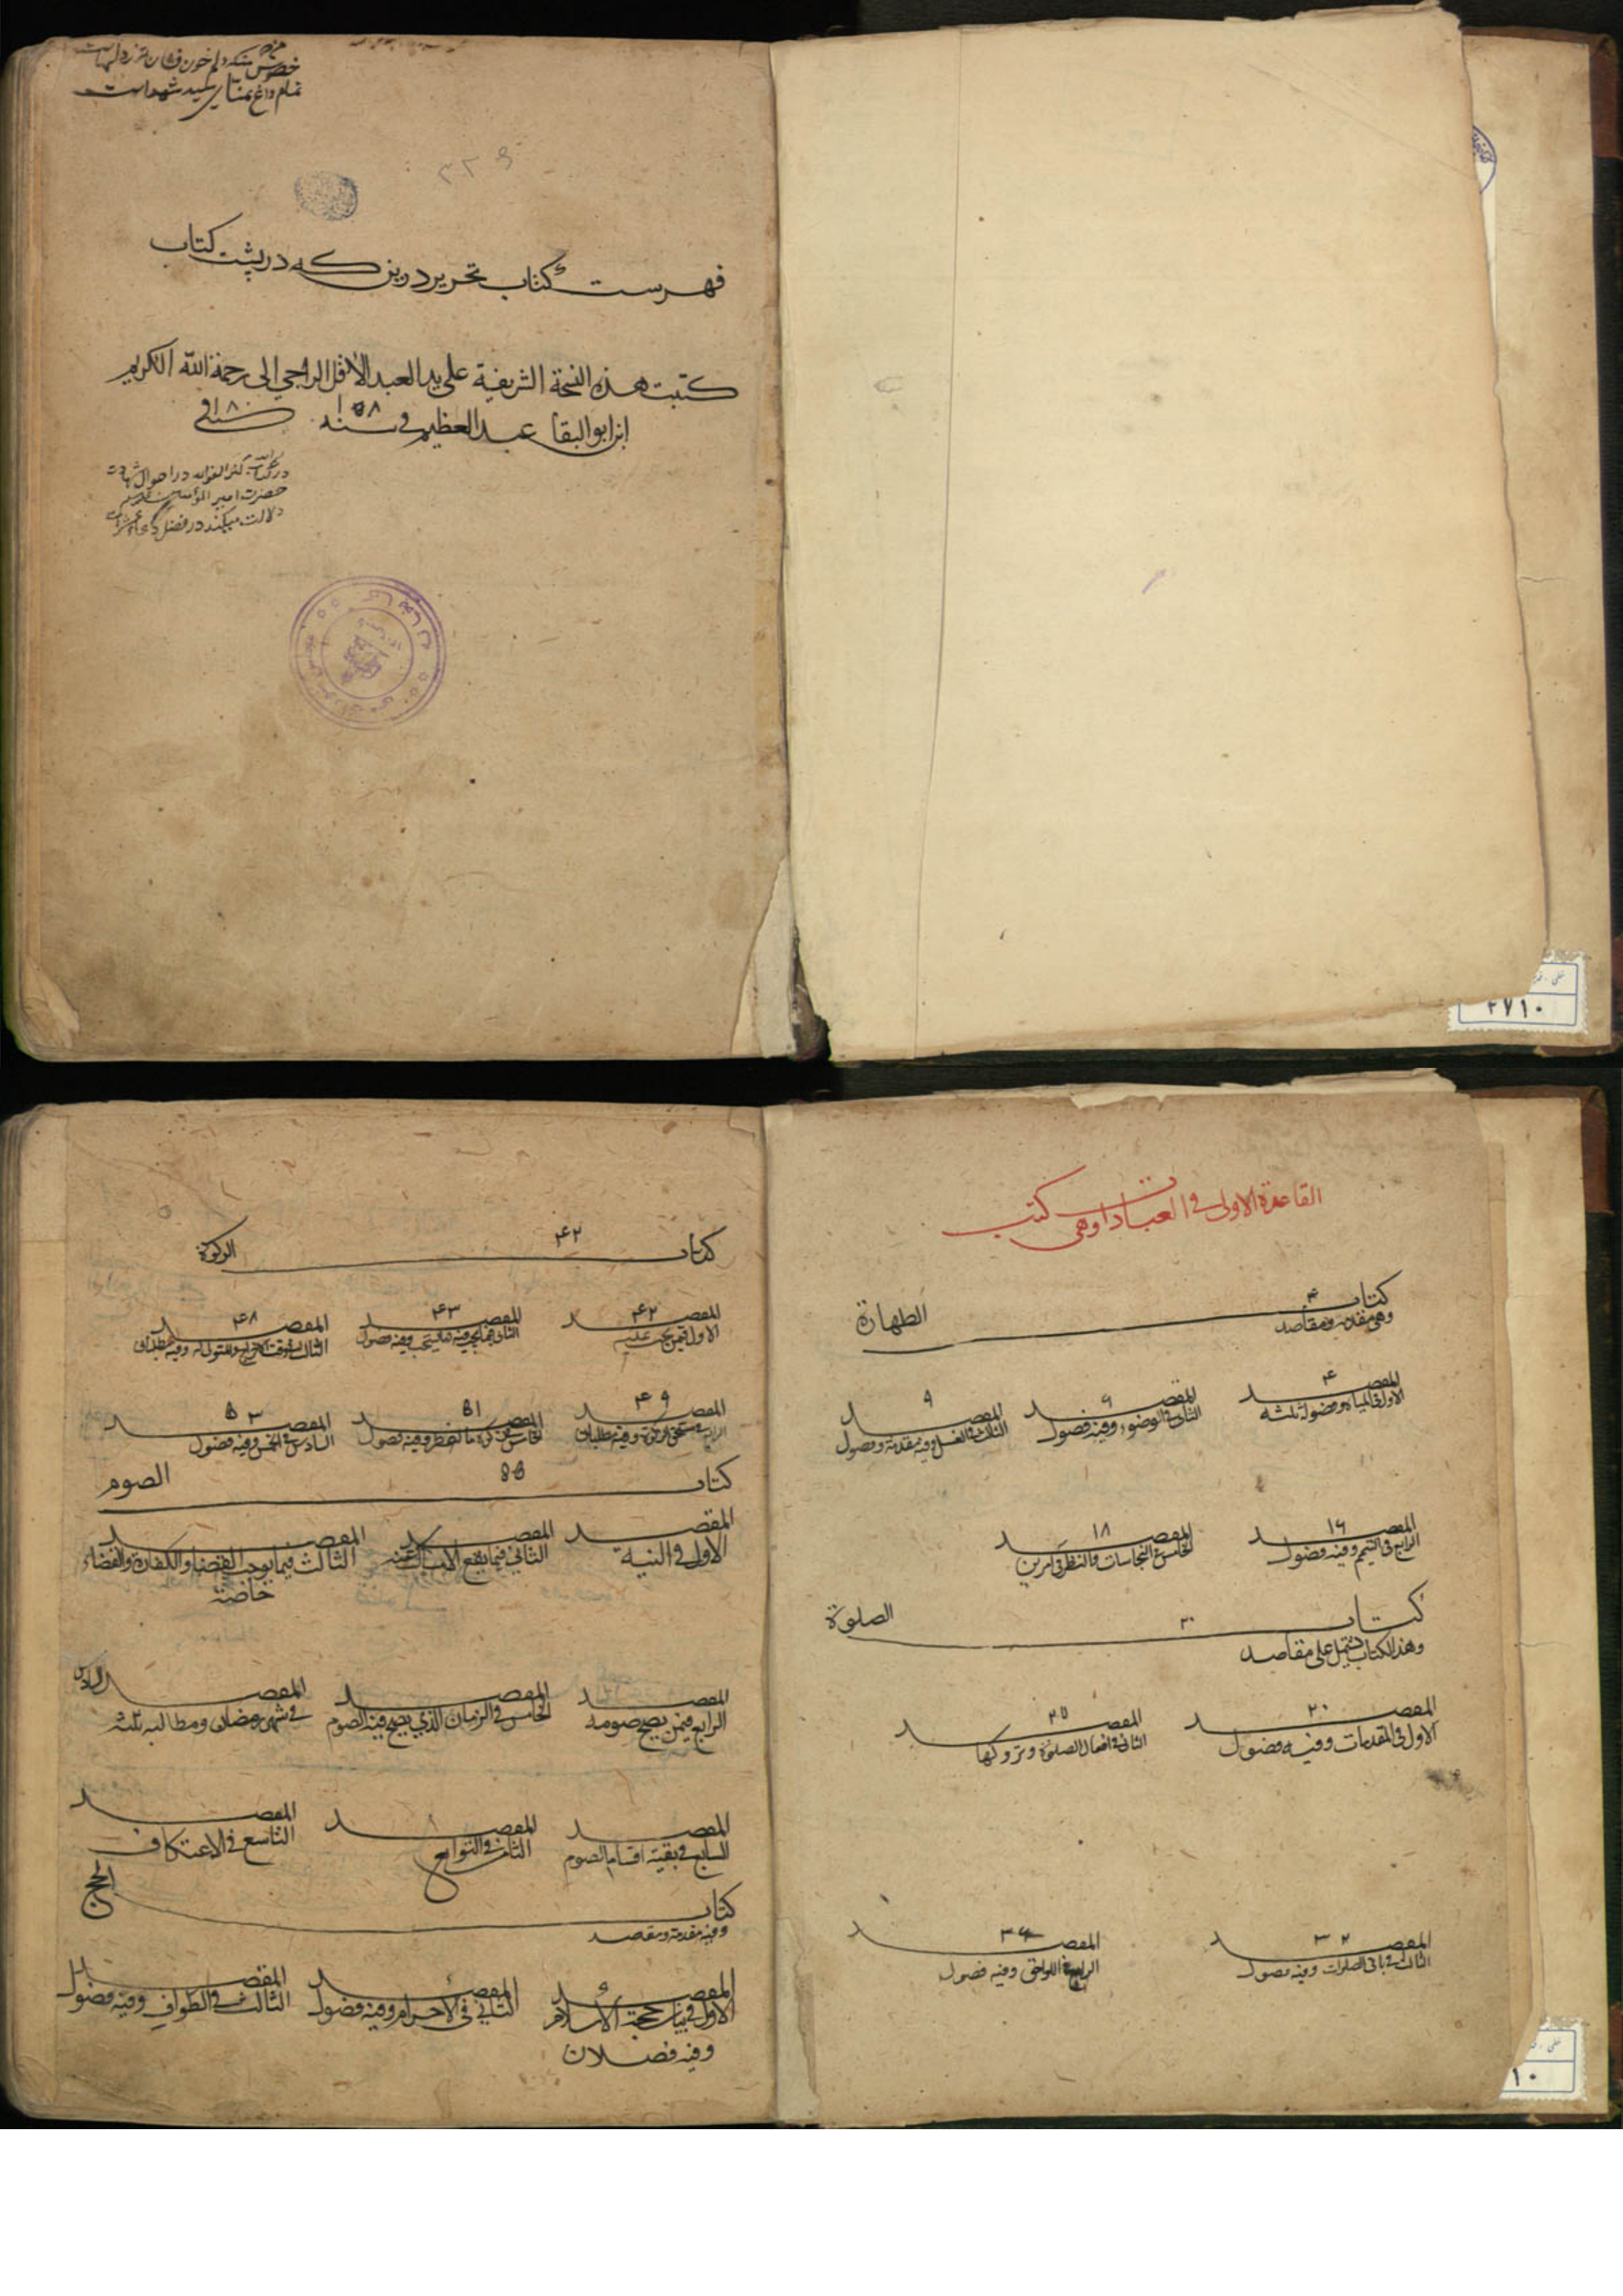 تمام داغ تمنای سید شهداست
۳۲۶
فهرست کتاب تحریر درین که در پشت کتاب
کتبت هذه النسخة الشریفة علی ید العبد الاقل الراجی الی رحمة الله الکریم
ابن ابو البقا عبد العظیم فی سنه ۱۰۵۸
در کتاب کنز الفوائد در احوال
حضرت امیر المؤمنین
دلالت میکند در فضل
۲۷۱۰
القاعدة الاولی فی العبادات وهی کتب
کتاب ۴ الطهارة
وهی مقدمة ومقاصد
المقصد ۴
الاول فی المیاه وفصوله ثلثه
المقصد ۶
الثانی فی الوضوء وفیه فصول
المقصد ۹
الثالث فی الغسل وفیه مقدمة وفصول
المقصد ۱۶
الرابع فی التیمم وفیه فصول
المقصد ۱۸
الخامس فی النجاسات والنظر فی امرین
کتاب ۲۰ الصلوة
وهذا الکتاب یشتمل علی مقاصد
المقصد ۲۰
الاول فی المقدمات وفیه فصول
المقصد ۲۵
الثانی فی افعال الصلوة وتروکها
المقصد ۳۲
الثالث فی باقی الصلوات وفیه فصول
المقصد ۳۶
الرابع فی اللواحق وفیه فصول
۱۰
کتاب ۴۲ الزکوة
المقصد ۴۲
الاول فیمن تجب علیه
المقصد ۴۳
الثانی فیما تجب فیه وما یستحب وفیه فصول
المقصد ۴۸
الثالث فی وقت الاخراج والمتولی له وفیه مطلبان
المقصد ۴۹
الرابع فی مستحق الزکوة وفیه مطلبان
المقصد ۵۱
الخامس فی زکوة الفطر وفیه فصول
المقصد ۵۳
السادس فی الخمس وفیه فصول
کتاب ۵۵ الصوم
المقصد
الاول فی النیة
المقصد
الثانی فیما یقع الامساک عنه
المقصد
الثالث فیما یوجب القضاء والکفارة والقضاء
خاصة
المقصد
الرابع فیمن یصح صومه
المقصد
الخامس فی الزمان الذی یصح فیه الصوم
المقصد السادس
فی شهر رمضان ومطالبه ثلثة
المقصد
السابع فی بقیة اقسام الصوم
المقصد
الثامن فی التوابع
المقصد
التاسع فی الاعتکاف
کتاب الحج
وفیه مقدمة ومقصد
المقصد
الاول فی بیان حجة الاسلام
وفیه فصلان
المقصد
الثانی فی الاحرام وفیه فصول
المقصد
الثالث فی الطواف وفیه فصول